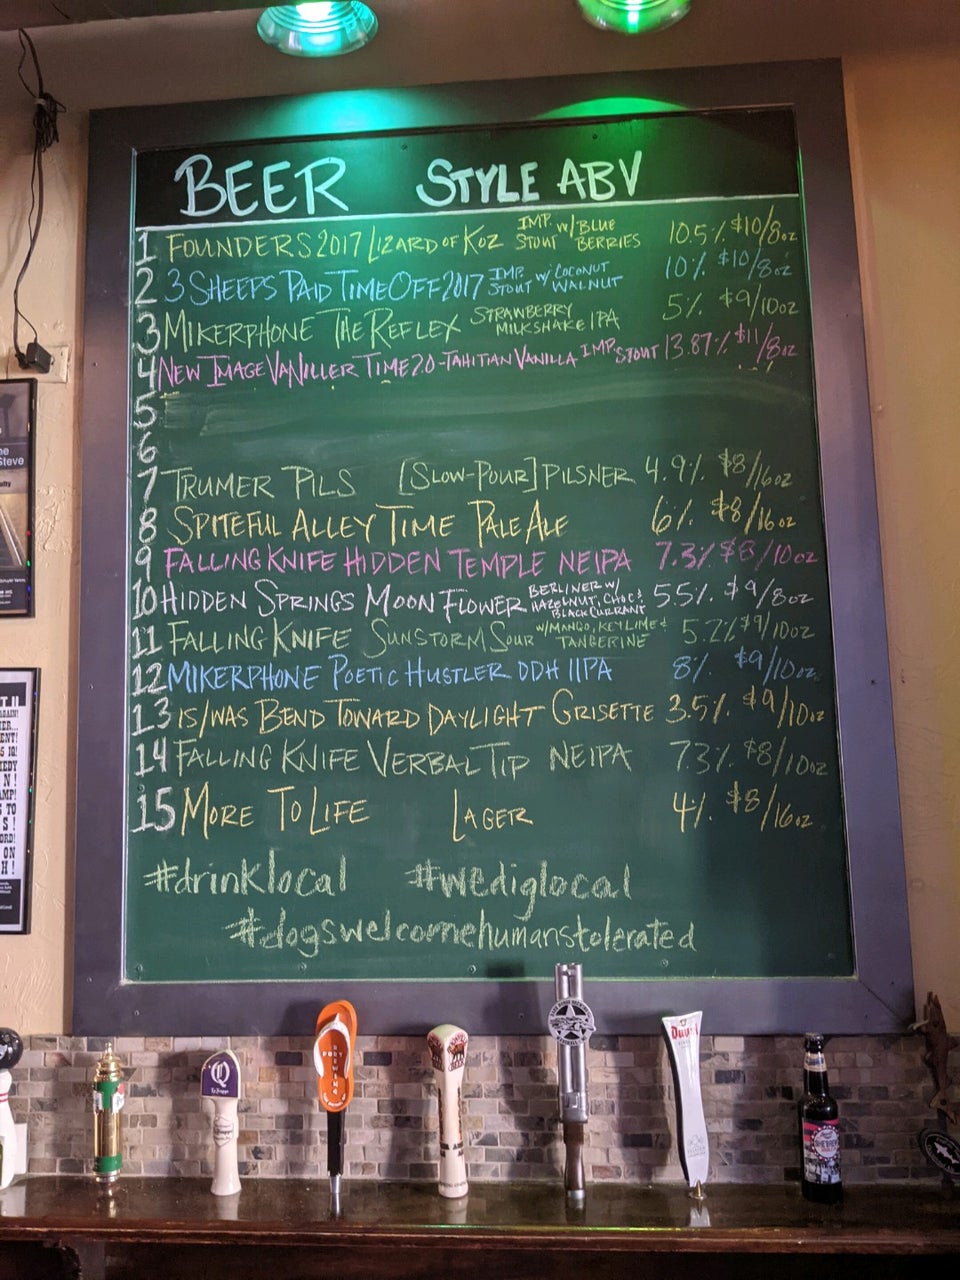 BEER STYLE ABV
1 FOUNDERS 2017 LIZARD OF KOZ IMP. STOUT w/ BLUE BERRIES 10.5% $10/8oz
2 3 SHEEPS PAID TIME OFF 2017 IMP. STOUT w/ COCONUT WALNUT 10% $10/8oz
3 MIKERPHONE THE REFLEX STRAWBERRY MILKSHAKE IPA 5% $9/10oz
4 NEW IMAGE VANILLER TIME 2.0 - TAHITIAN VANILLA IMP. STOUT 13.87% $11/8oz
5
6
7 TRUMER PILS [SLOW-POUR] PILSNER 4.9% $8/16oz
8 SPITEFUL ALLEY TIME PALE ALE 6% $8/16oz
9 FALLING KNIFE HIDDEN TEMPLE NEIPA 7.3% $8/10oz
10 HIDDEN SPRINGS MOON FLOWER BERLINER w/ HAZELNUT, CHOC & BLACK CURRANT 5.5% $9/8oz
11 FALLING KNIFE SUNSTORM SOUR w/ MANGO, KEY LIME & TANGERINE 5.2% $9/10oz
12 MIKERPHONE POETIC HUSTLER DDH IIPA 8% $9/10oz
13 IS/WAS BEND TOWARD DAYLIGHT GRISETTE 3.5% $9/10oz
14 FALLING KNIFE VERBAL TIP NEIPA 7.3% $8/10oz
15 MORE TO LIFE LAGER 4% $8/16oz
#drinklocal #wediglocal
#dogswelcomehumanstolerated
Q
Duvel